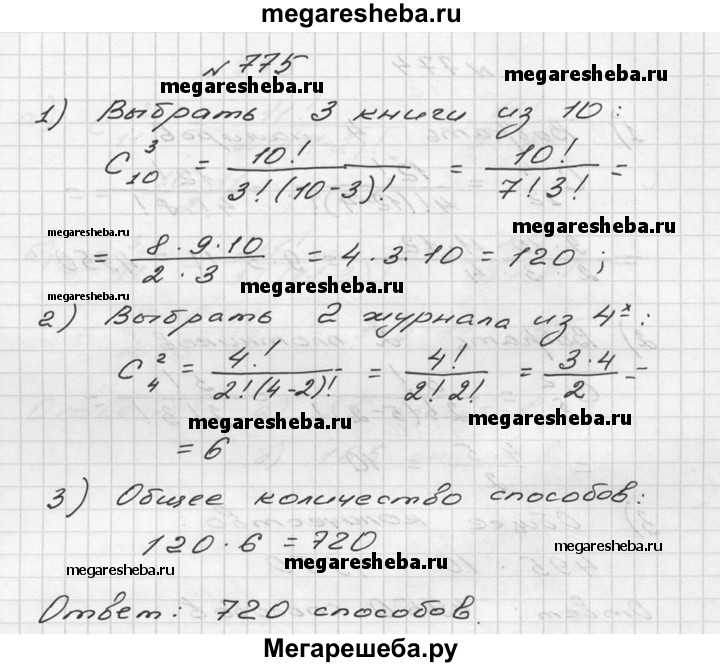 megaresheba.ru
№ 775
megaresheba.ru megaresheba.ru
1) Выбрать 3 книги из 10:
C₁₀³ = 10! / 3!(10-3)! = 10! / 7!3! =
megaresheba.ru megaresheba.ru
= 8·9·10 / 2·3 = 4·3·10 = 120;
megaresheba.ru megaresheba.ru
2) Выбрать 2 журнала из 4ˣ:
C₄² = 4! / 2!(4-2)! = 4! / 2!2! = 3·4 / 2 =
megaresheba.ru megaresheba.ru
= 6
3) Общее количество способов:
120·6 = 720
megaresheba.ru megaresheba.ru megaresheba.ru
Ответ: 720 способов.
Мегарешеба.ру